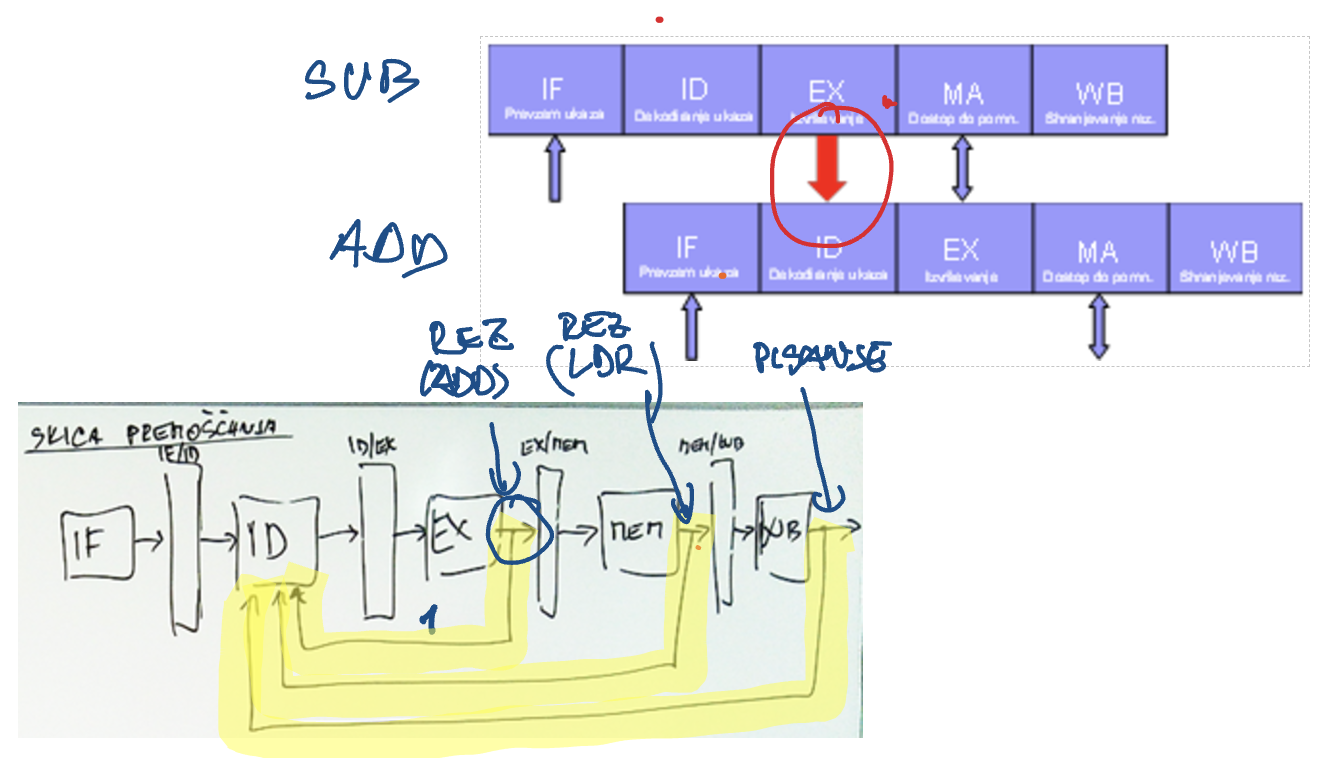 SUB
IF ID EX MA WB
Prevzem ukaza Dekodiranje ukaza Izvrševanje Dostop do pomn. Shranjevanje rez.
ADD
IF ID EX MA WB
Prevzem ukaza Dekodiranje ukaza Izvrševanje Dostop do pomn. Shranjevanje rez.
REZ REZ PISANJE
(ADD) (LDR)
SKICA PREMOŠČANJA
IF/ID ID/EX EX/MEM MEM/WB
IF ID EX MEM WB
1